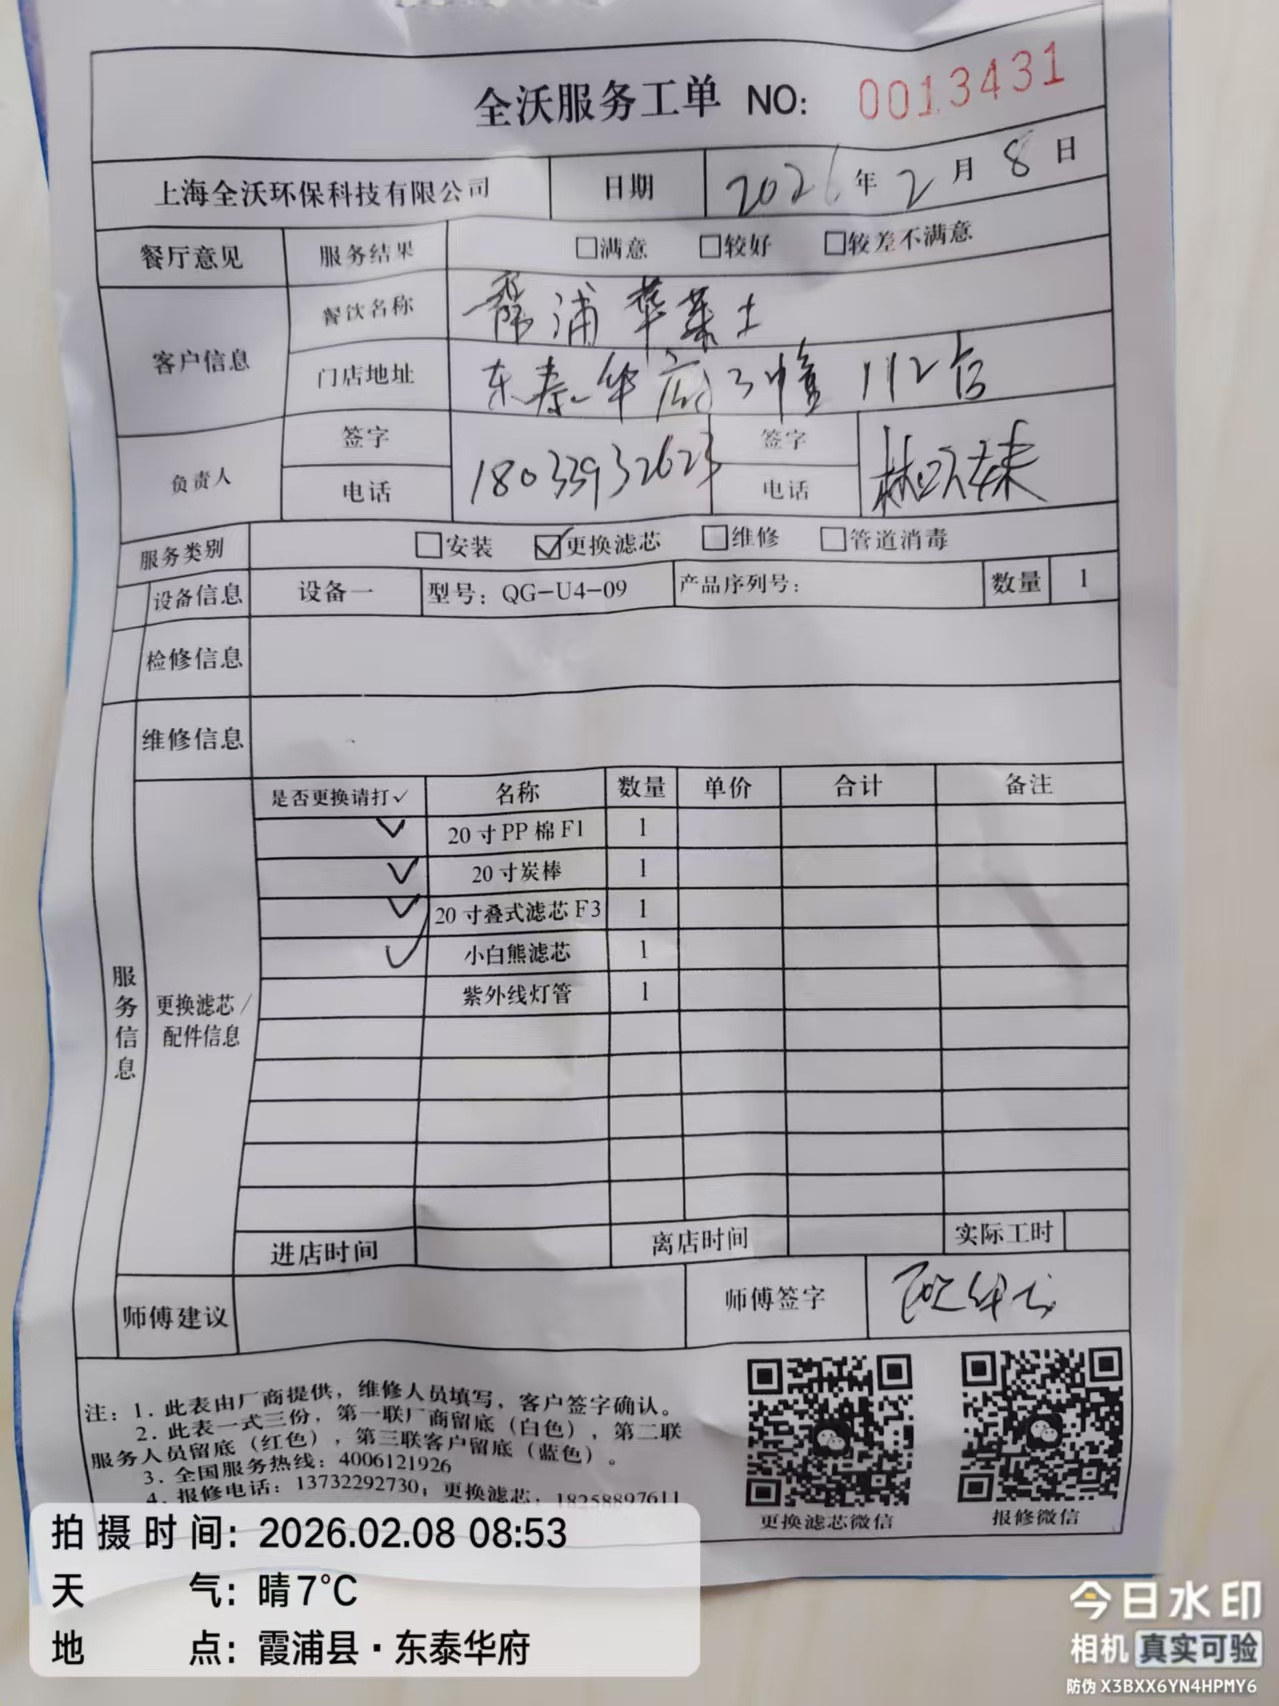 全沃服务工单 NO: 0013431
上海全沃环保科技有限公司 日期 2026年2月8日
餐厅意见 服务结果 □满意 □较好 □较差不满意
客户信息 餐饮名称 霞浦华莱士
门店地址 东泰华府3幢112台
负责人 签字 18033932623 签字
电话 电话
服务类别 □安装 ☑更换滤芯 □维修 □管道消毒
设备信息 设备一 型号：QG-U4-09 产品序列号： 数量 1
检修信息
维修信息
服务信息
更换滤芯/配件信息
是否更换请打✓ 名称 数量 单价 合计 备注
✓ 20寸PP棉F1 1
✓ 20寸炭棒 1
✓ 20寸叠式滤芯F3 1
✓ 小白熊滤芯 1
紫外线灯管 1
进店时间 离店时间 实际工时
师傅建议 师傅签字
注：1. 此表由厂商提供，维修人员填写，客户签字确认。
2. 此表一式三份，第一联厂商留底（白色），第二联
服务人员留底（红色），第三联客户留底（蓝色）。
3. 全国服务热线：4006121926
4. 报修电话：13732292730；更换滤芯：18258897611
更换滤芯微信 报修微信
拍摄时间：2026.02.08 08:53
天气：晴7°C
地点：霞浦县·东泰华府
今日水印
相机 真实可验
防伪 X3BXX6YN4HPMY6